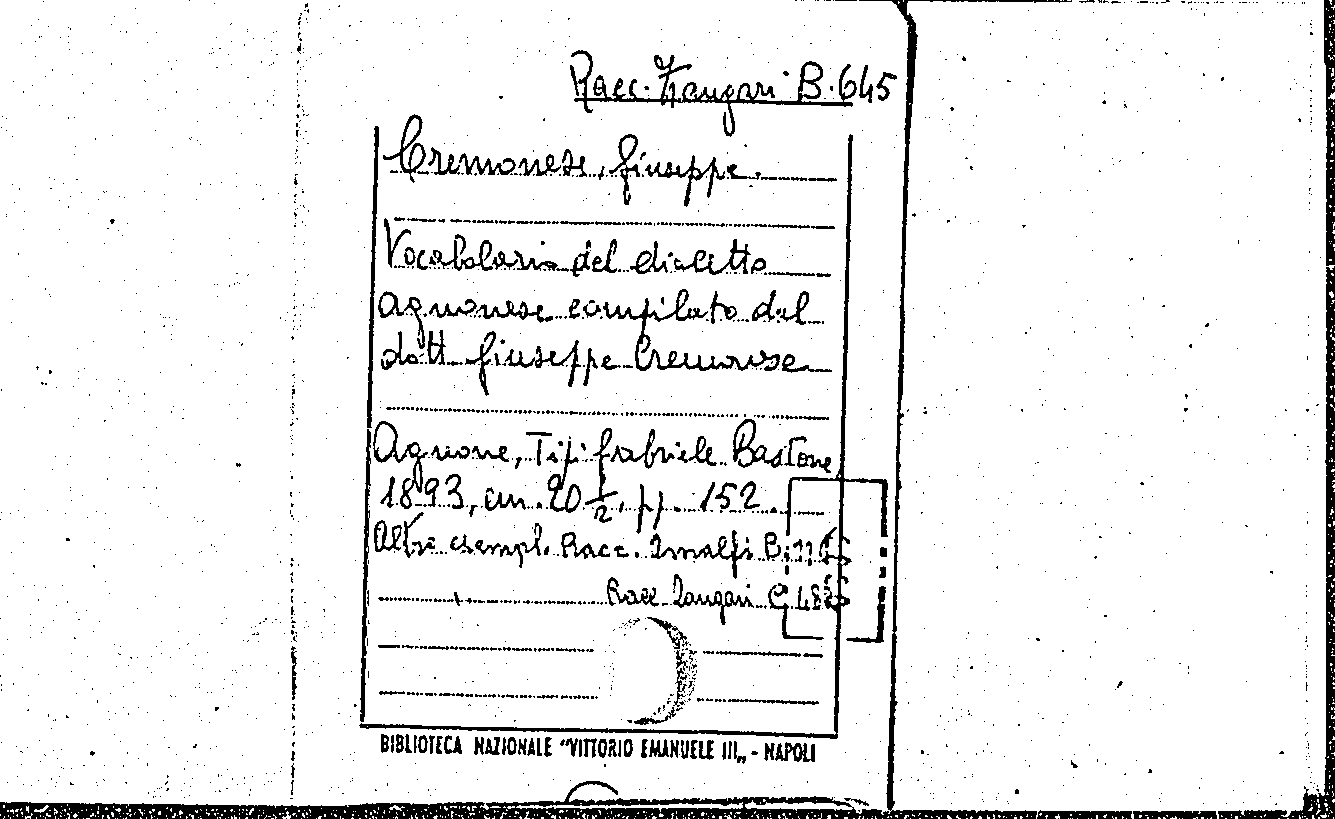 Racc. Zangari B. 645
Cremonese, Giuseppe.
Vocabolario del dialetto
agnonese compilato dal
dott. Giuseppe Cremonese
Agnone, Tip. Gabriele Bastone,
1893, cm. 20 1/2, pp. 152.
Altri esempl. Racc. Amalfi B.
Racc. Zangari C
BIBLIOTECA NAZIONALE "VITTORIO EMANUELE III„ - NAPOLI